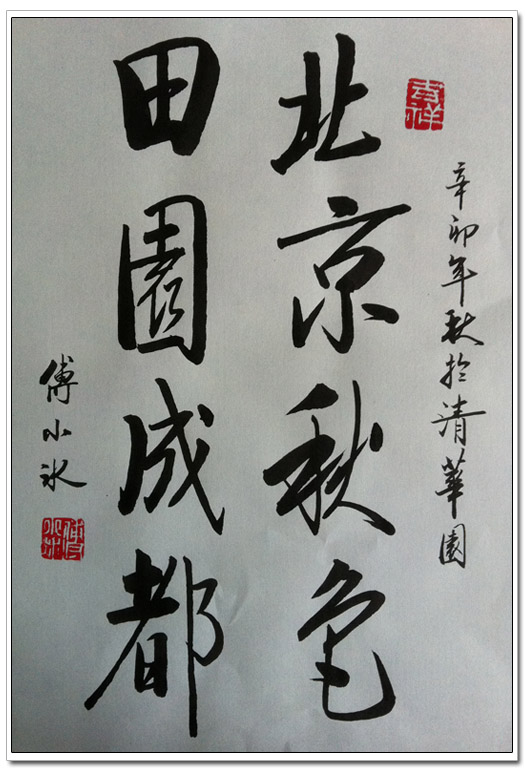 辛卯年秋於清華園
北京秋色
田園成都
傅小冰